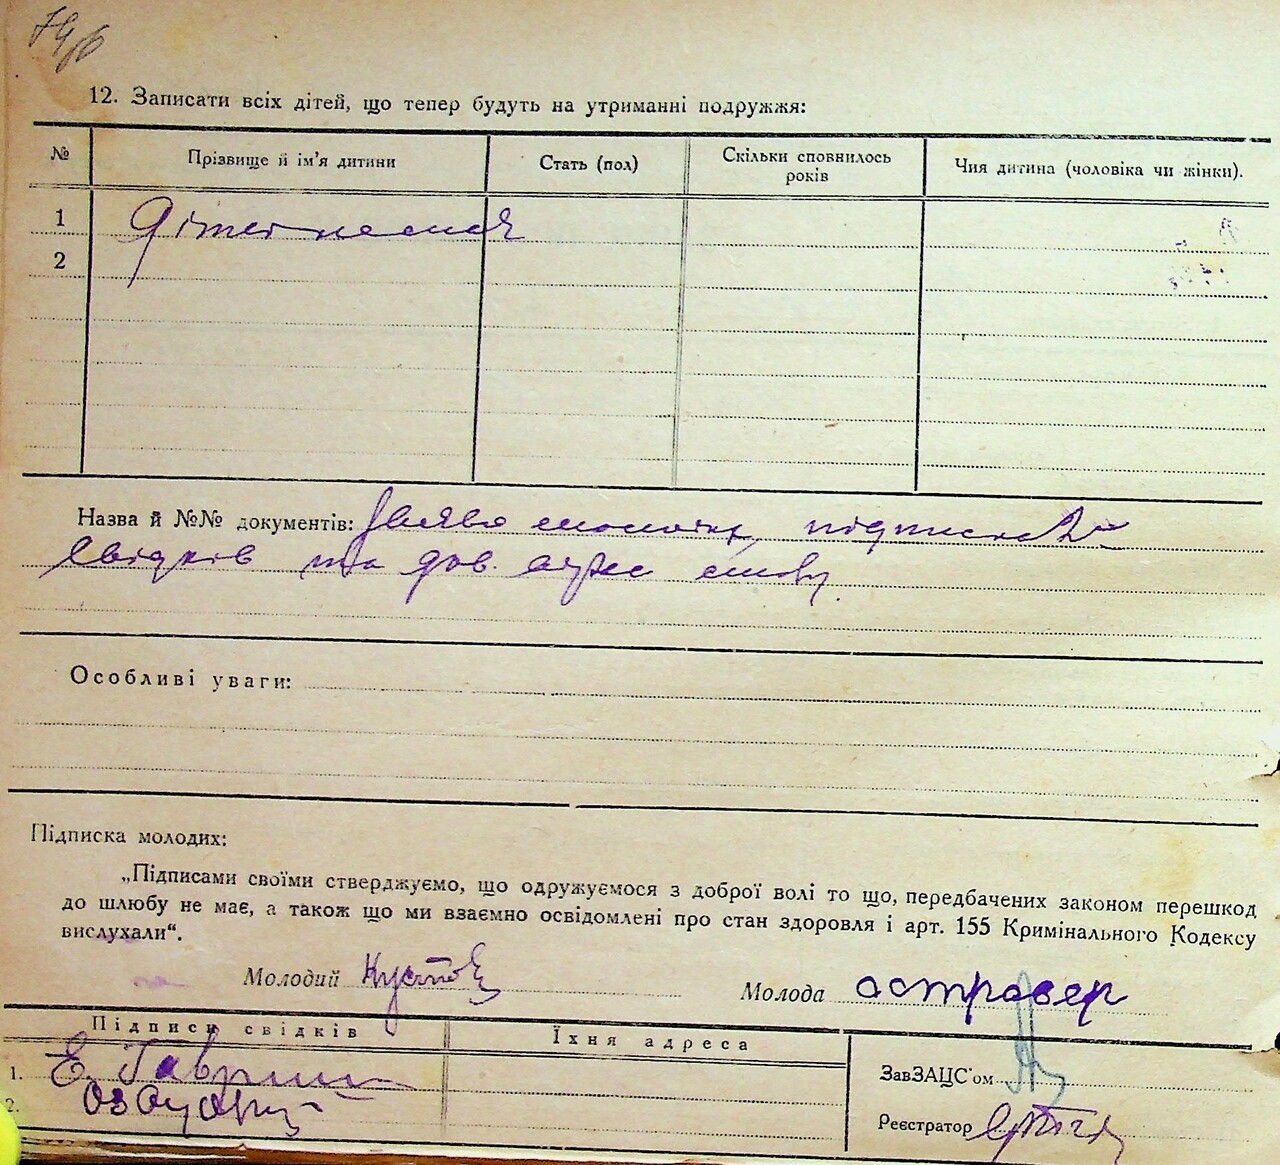 12. Записати всіх дітей, що тепер будуть на утриманні подружжя:
№ Прізвище й ім'я дитини Стать (пол) Скільки сповнилось років Чия дитина (чоловіка чи жінки).
1 Дітей немає
2
Назва й №№ документів: підписка 2х
свідків та дов.
Особливі уваги:
Підписка молодих:
„Підписами своїми стверджуємо, що одружуємося з доброї волі то що, передбачених законом перешкод
до шлюбу не має, а також що ми взаємно освідомлені про стан здоровля і арт. 155 Кримінального Кодексу
вислухали“.
Молодий Молода островер
Підписи свідків Їхня адреса
1. Е. ЗавЗАЦС'ом
2. Реєстратор